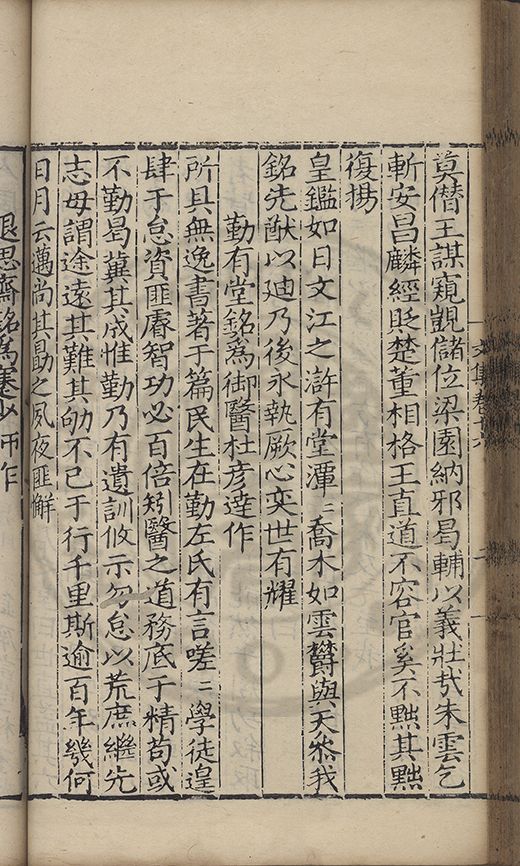 文集卷十六
莫僭王謀窺覬儲位梁園納邪曷輔以義壯㢤朱雲乞
斬安昌麟經貶楚董相格王直道不容官奚不黜其黜
復揚
皇鑑如日文江之滸有堂潭〻喬木如雲欝與天叅我
銘先猷以迪乃後永執厥心奕世有耀
勤有堂銘爲御醫杜彦逹作
所具無逸書著于篇民生在勤左氏有言嗟〻學徒遑
肆于怠資匪睿智功必百倍矧醫之道務底于精苟或
不勤曷冀其成惟勤乃有遺訓攸示勿怠以荒庶繼先
志毋謂途遠其難其劬不已于行千里斯逾百年幾何
日月云邁尚其勗之夙夜匪懈
退思齋銘爲蹇少師作